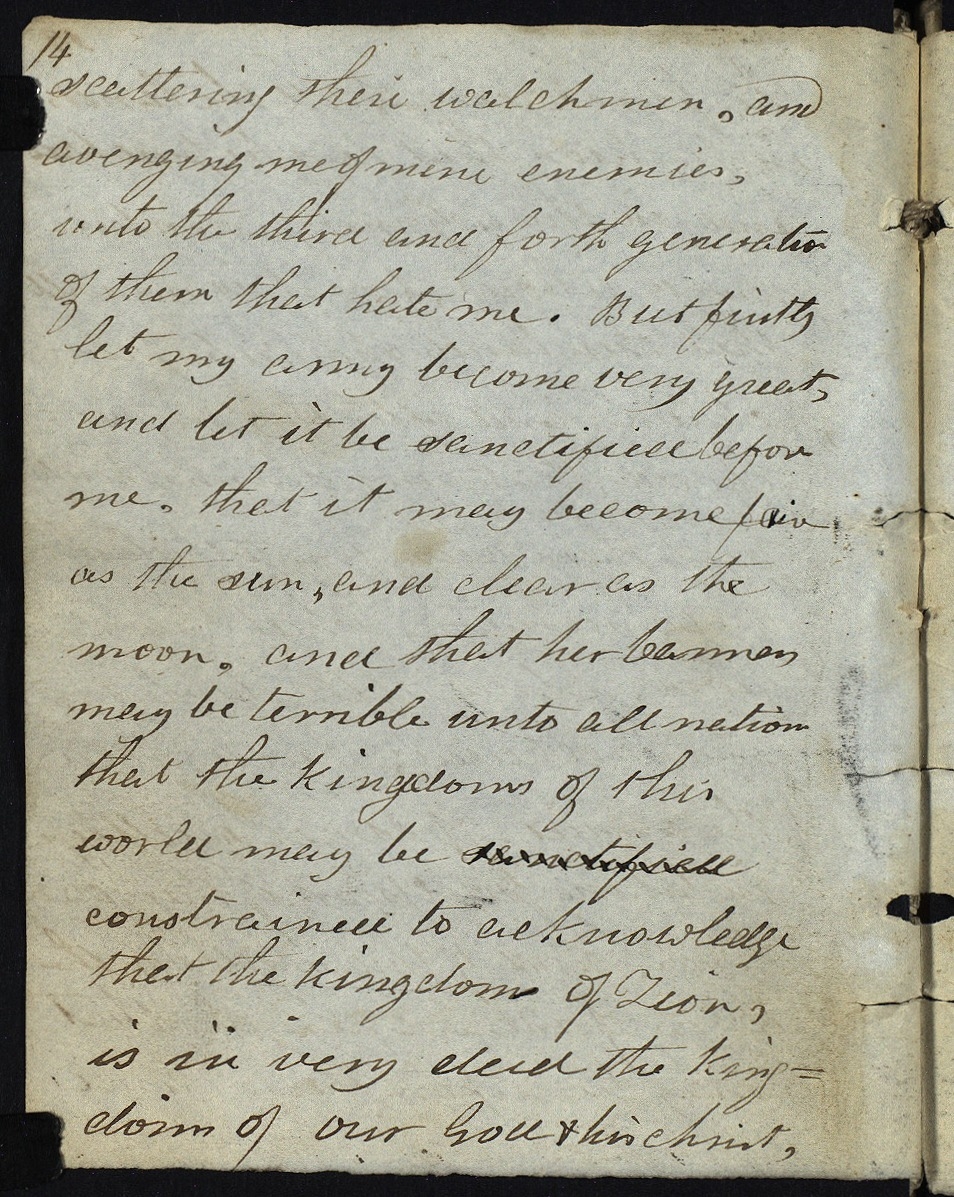 14
scattering their watchmen, and
avenging me of mine enemies,
unto the third and forth generatio
of them that hate me. But firstly
let my army become very great,
and let it be sanctified befor
me. that it may become fair
as the sun, and clear as the
moon. and that her banners
may be terrible unto all nation
that the kingdoms of this
world may be sanctified
constrained to acknowledge
that the kingdom of Zion,
is in very deed the king=
dom of our God & his christ,